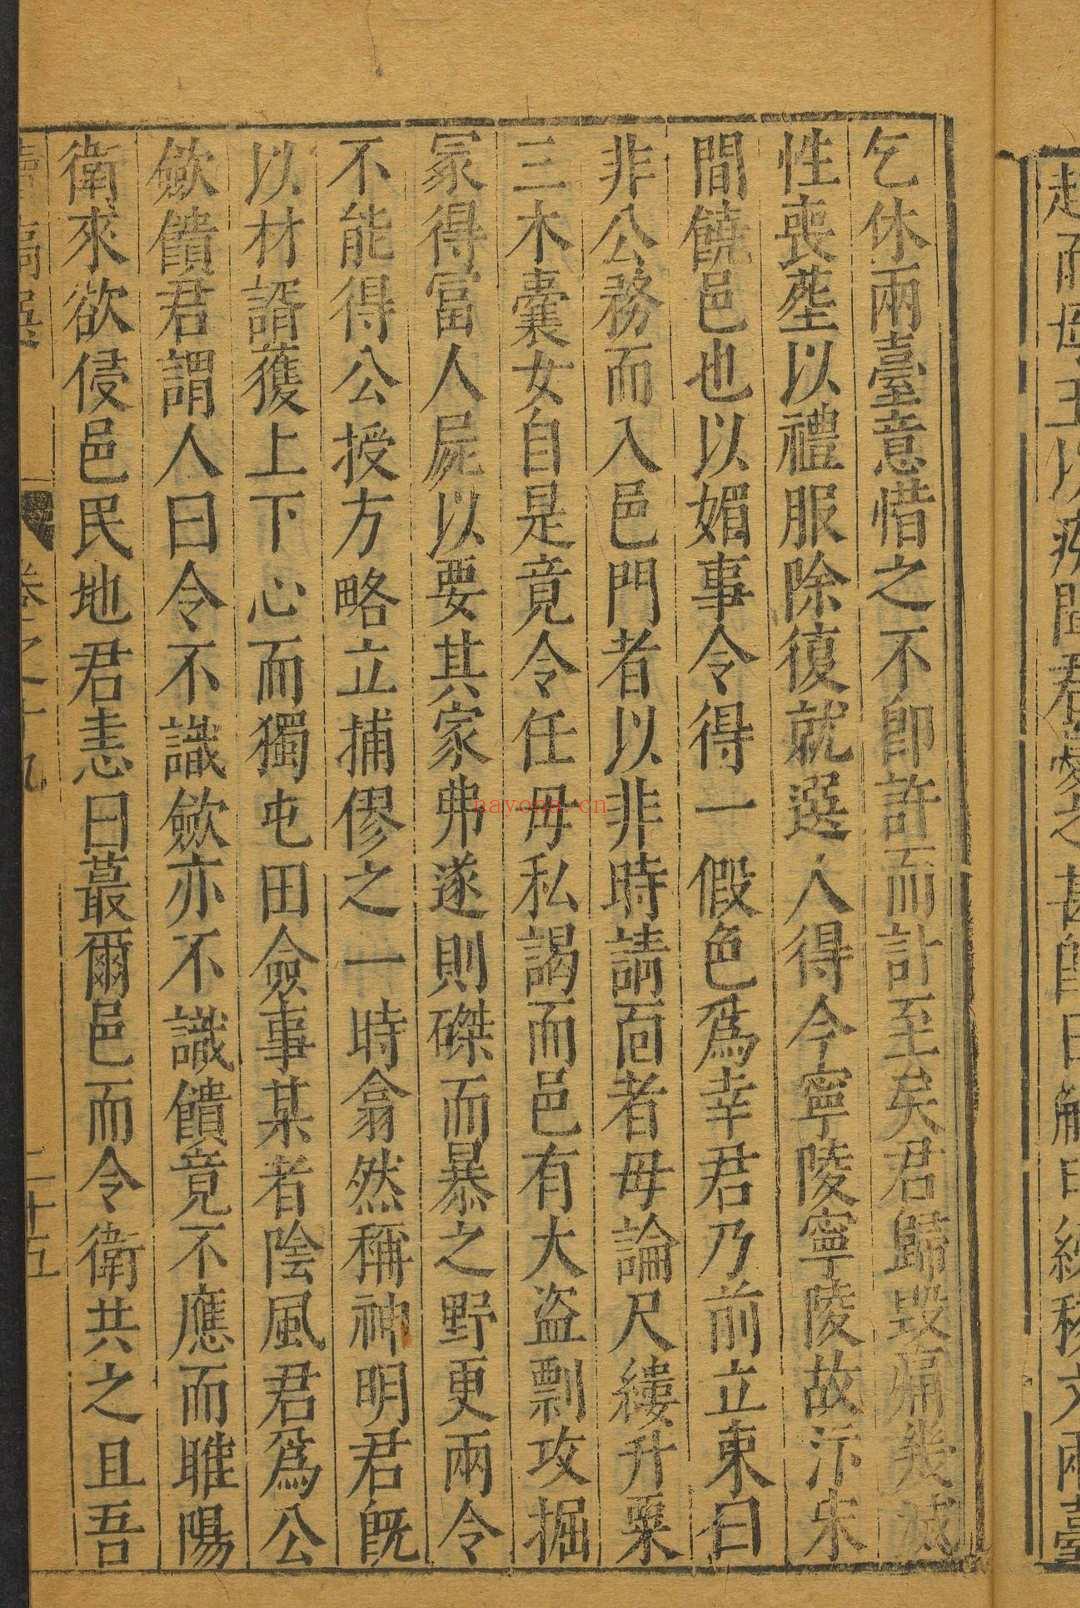 乞休兩臺意惜之不卽許而計至矣君歸毀痛幾滅
性喪塟以禮服除復就選人得今寧陵寧陵故汴宋
間饒邑也以媚事令得一假色爲幸君乃前立東曰
非公務而入邑門者以非時請而者毋論尺縷升粟
三木囊女自是竟令任毋私謁而邑有大盗剽攻掘
冡得富人屍以要其家弗遂則磔而暴之野更兩令
不能得公授方略立捕僇之一時翕然稱神明君旣
以材諝獲上下心而獨屯田僉事某者陰風君爲公
歛饋君謂人曰令不識歛亦不識饋竟不應而睢陽
衛來欲侵邑民地君恚曰蕞爾邑而令衛共之且吾
卷之十九
二十五
nayona.cn